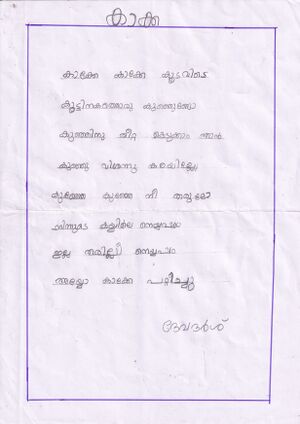 കാക്ക
കാക്കേ കാക്കേ കൂടവിടെ
കൂട്ടിനകത്തൊരു കുഞ്ഞുണ്ടോ
കുഞ്ഞിനു തീറ്റ കൊടുക്കാം ഞാൻ
കുഞ്ഞു വിശന്നു കരയില്ലേ
കുഞ്ഞേ കുഞ്ഞേ നീ തരുമോ
നിന്നുടെ കയ്യിലെ നെയ്യപ്പം
ഇല്ല തരില്ലീ നെയ്യപ്പം
അയ്യോ കാക്കേ പറ്റിച്ചു
ദേവദർശ്